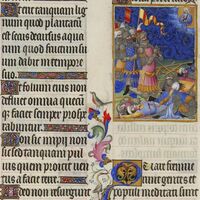 Et erit tanquam lignum
quod plantatum
est secus decursus aqua
rum quod fructum su
um dabit in tempore
suo
Et folium eius non
defluet et omnia quecu
que faciet prospera
buntur
Non sic impii non
sic sed tanquam pul
uis quem proicit uen
tus a facie terre
Ideo non resurgunt
gentes et
populi meditati sunt